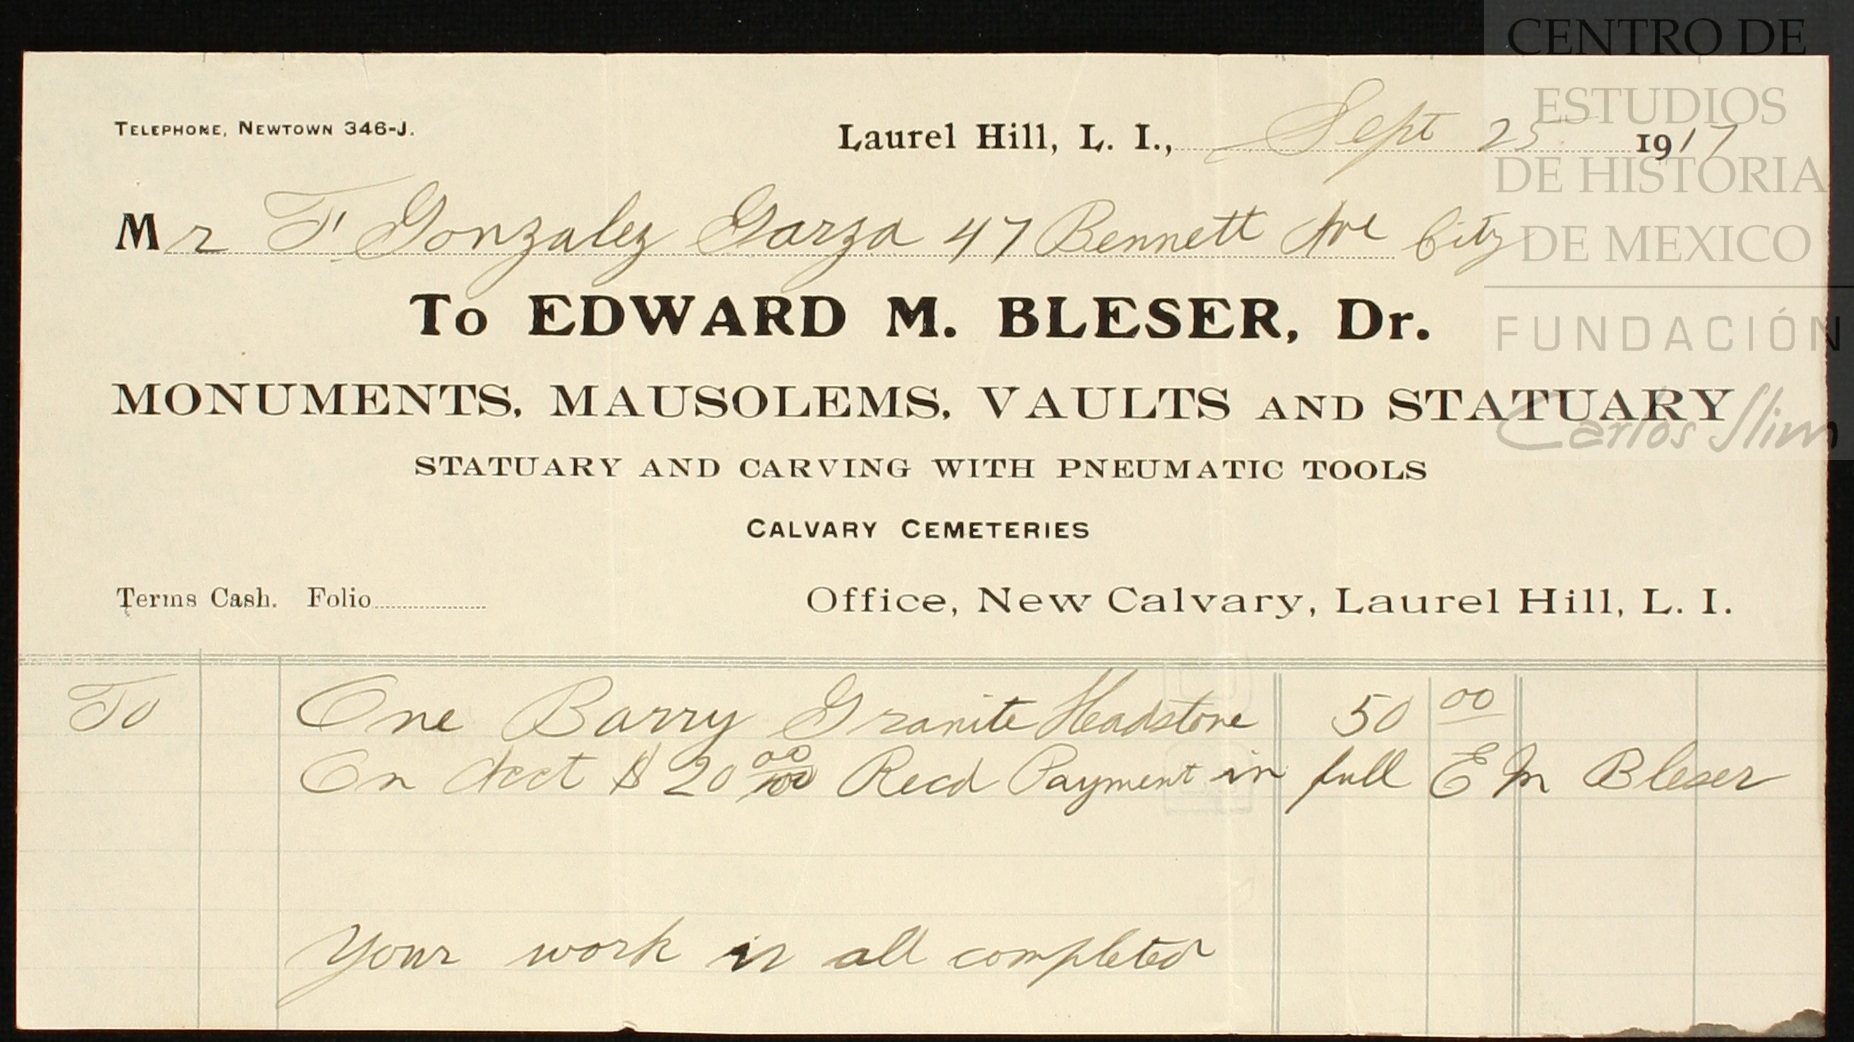 CENTRO DE
ESTUDIOS
DE HISTORIA
DE MEXICO
FUNDACIÓN
Carlos Slim
TELEPHONE, NEWTOWN 346-J.
Laurel Hill, L. I., Sept 25 1917
Mr F. Gonzalez Garza 47 Bennett Ave City
To EDWARD M. BLESER, Dr.
MONUMENTS, MAUSOLEMS, VAULTS AND STATUARY
STATUARY AND CARVING WITH PNEUMATIC TOOLS
CALVARY CEMETERIES
Terms Cash. Folio
Office, New Calvary, Laurel Hill, L. I.
To One Barry Granite Headstone 50 00
On Acct $ 20 00/100 Recd Payment in full E M Bleser
Your work is all completed